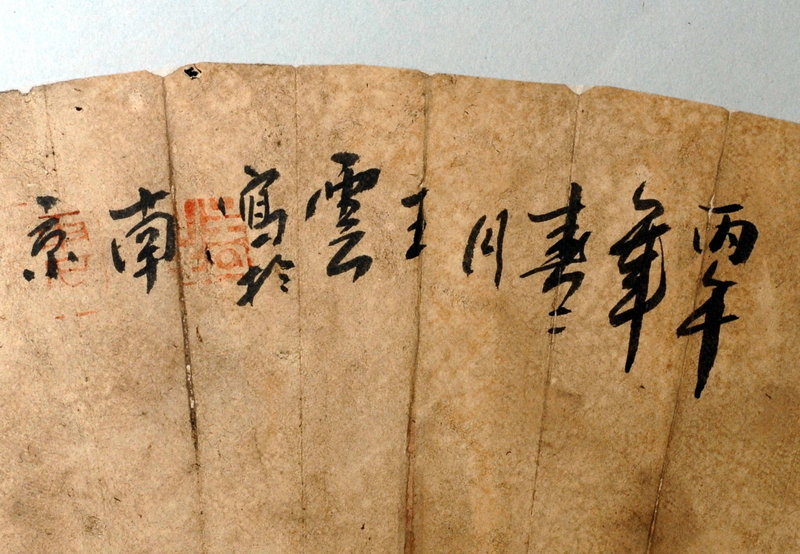 丙午
年
春二
月
王
雲
寫於
南
京